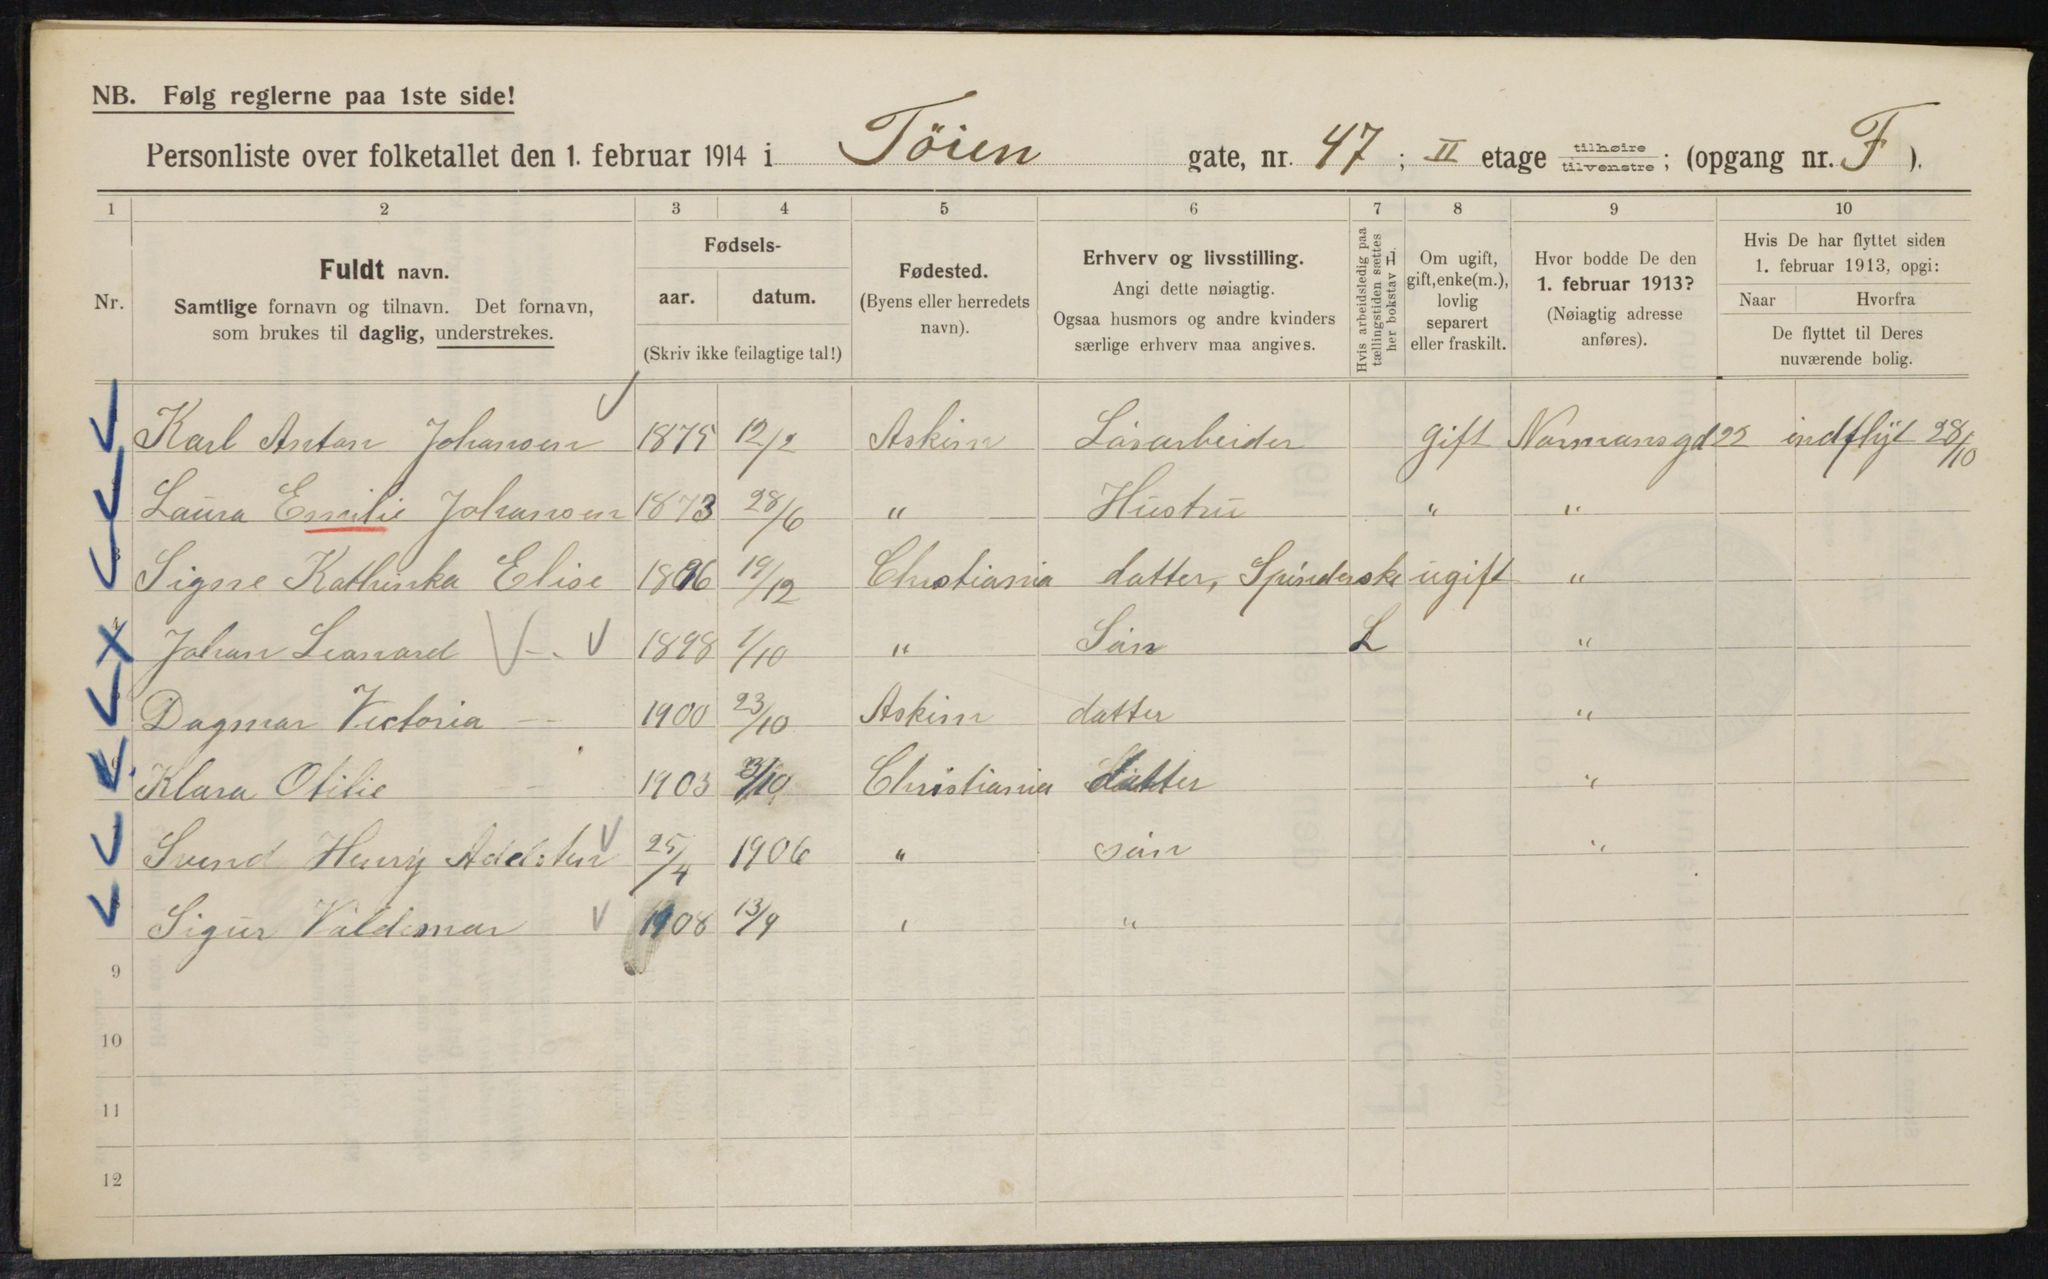 NB. Følg reglerne paa 1ste side!
Personliste over folketallet den 1. februar 1914 i Töien gate, nr. 47 ; II etage tilhøire tilvenstre ; (opgang nr. F ).
1 2 3 4 5 6 7 8 9 10
Nr.
Fuldt navn.
Samtlige fornavn og tilnavn. Det fornavn,
som brukes til daglig, understrekes.
Fødsels-
aar. datum.
(Skriv ikke feilagtige tal!)
Fødested.
(Byens eller herredets
navn).
Erhverv og livsstilling.
Angi dette nøiagtig.
Ogsaa husmors og andre kvinders
særlige erhverv maa angives.
Hvis arbeidsledig paa
tællingstiden sættes
her bokstav L.
Om ugift,
gift, enke(m.),
lovlig
separert
eller fraskilt.
Hvor bodde De den
1. februar 1913?
(Nøiagtig adresse
anføres).
Hvis De har flyttet siden
1. februar 1913, opgi:
Naar Hvorfra
De flyttet til Deres
nuværende bolig.
Karl Anton Johansen 1875 12/2 Askim Låsarbeider gift Normansgd 22 indflyt 28/10
Laura Emilie Johansen 1873 28/6 " Hustru " "
3 Signe Kathinka Elise 1896 19/12 Christiania datter, Spinderske ugift "
4 Johan Leonard — 1898 1/10 " Sön L "
Dagmar Victoria — 1900 23/10 Askim datter "
6 Klara Otilie — 1903 /10 Christiania datter "
Svend Henry Adelsten 25/4 1906 " sön "
Sigur Valdemar 1908 13/9 " "
9
10
11
12